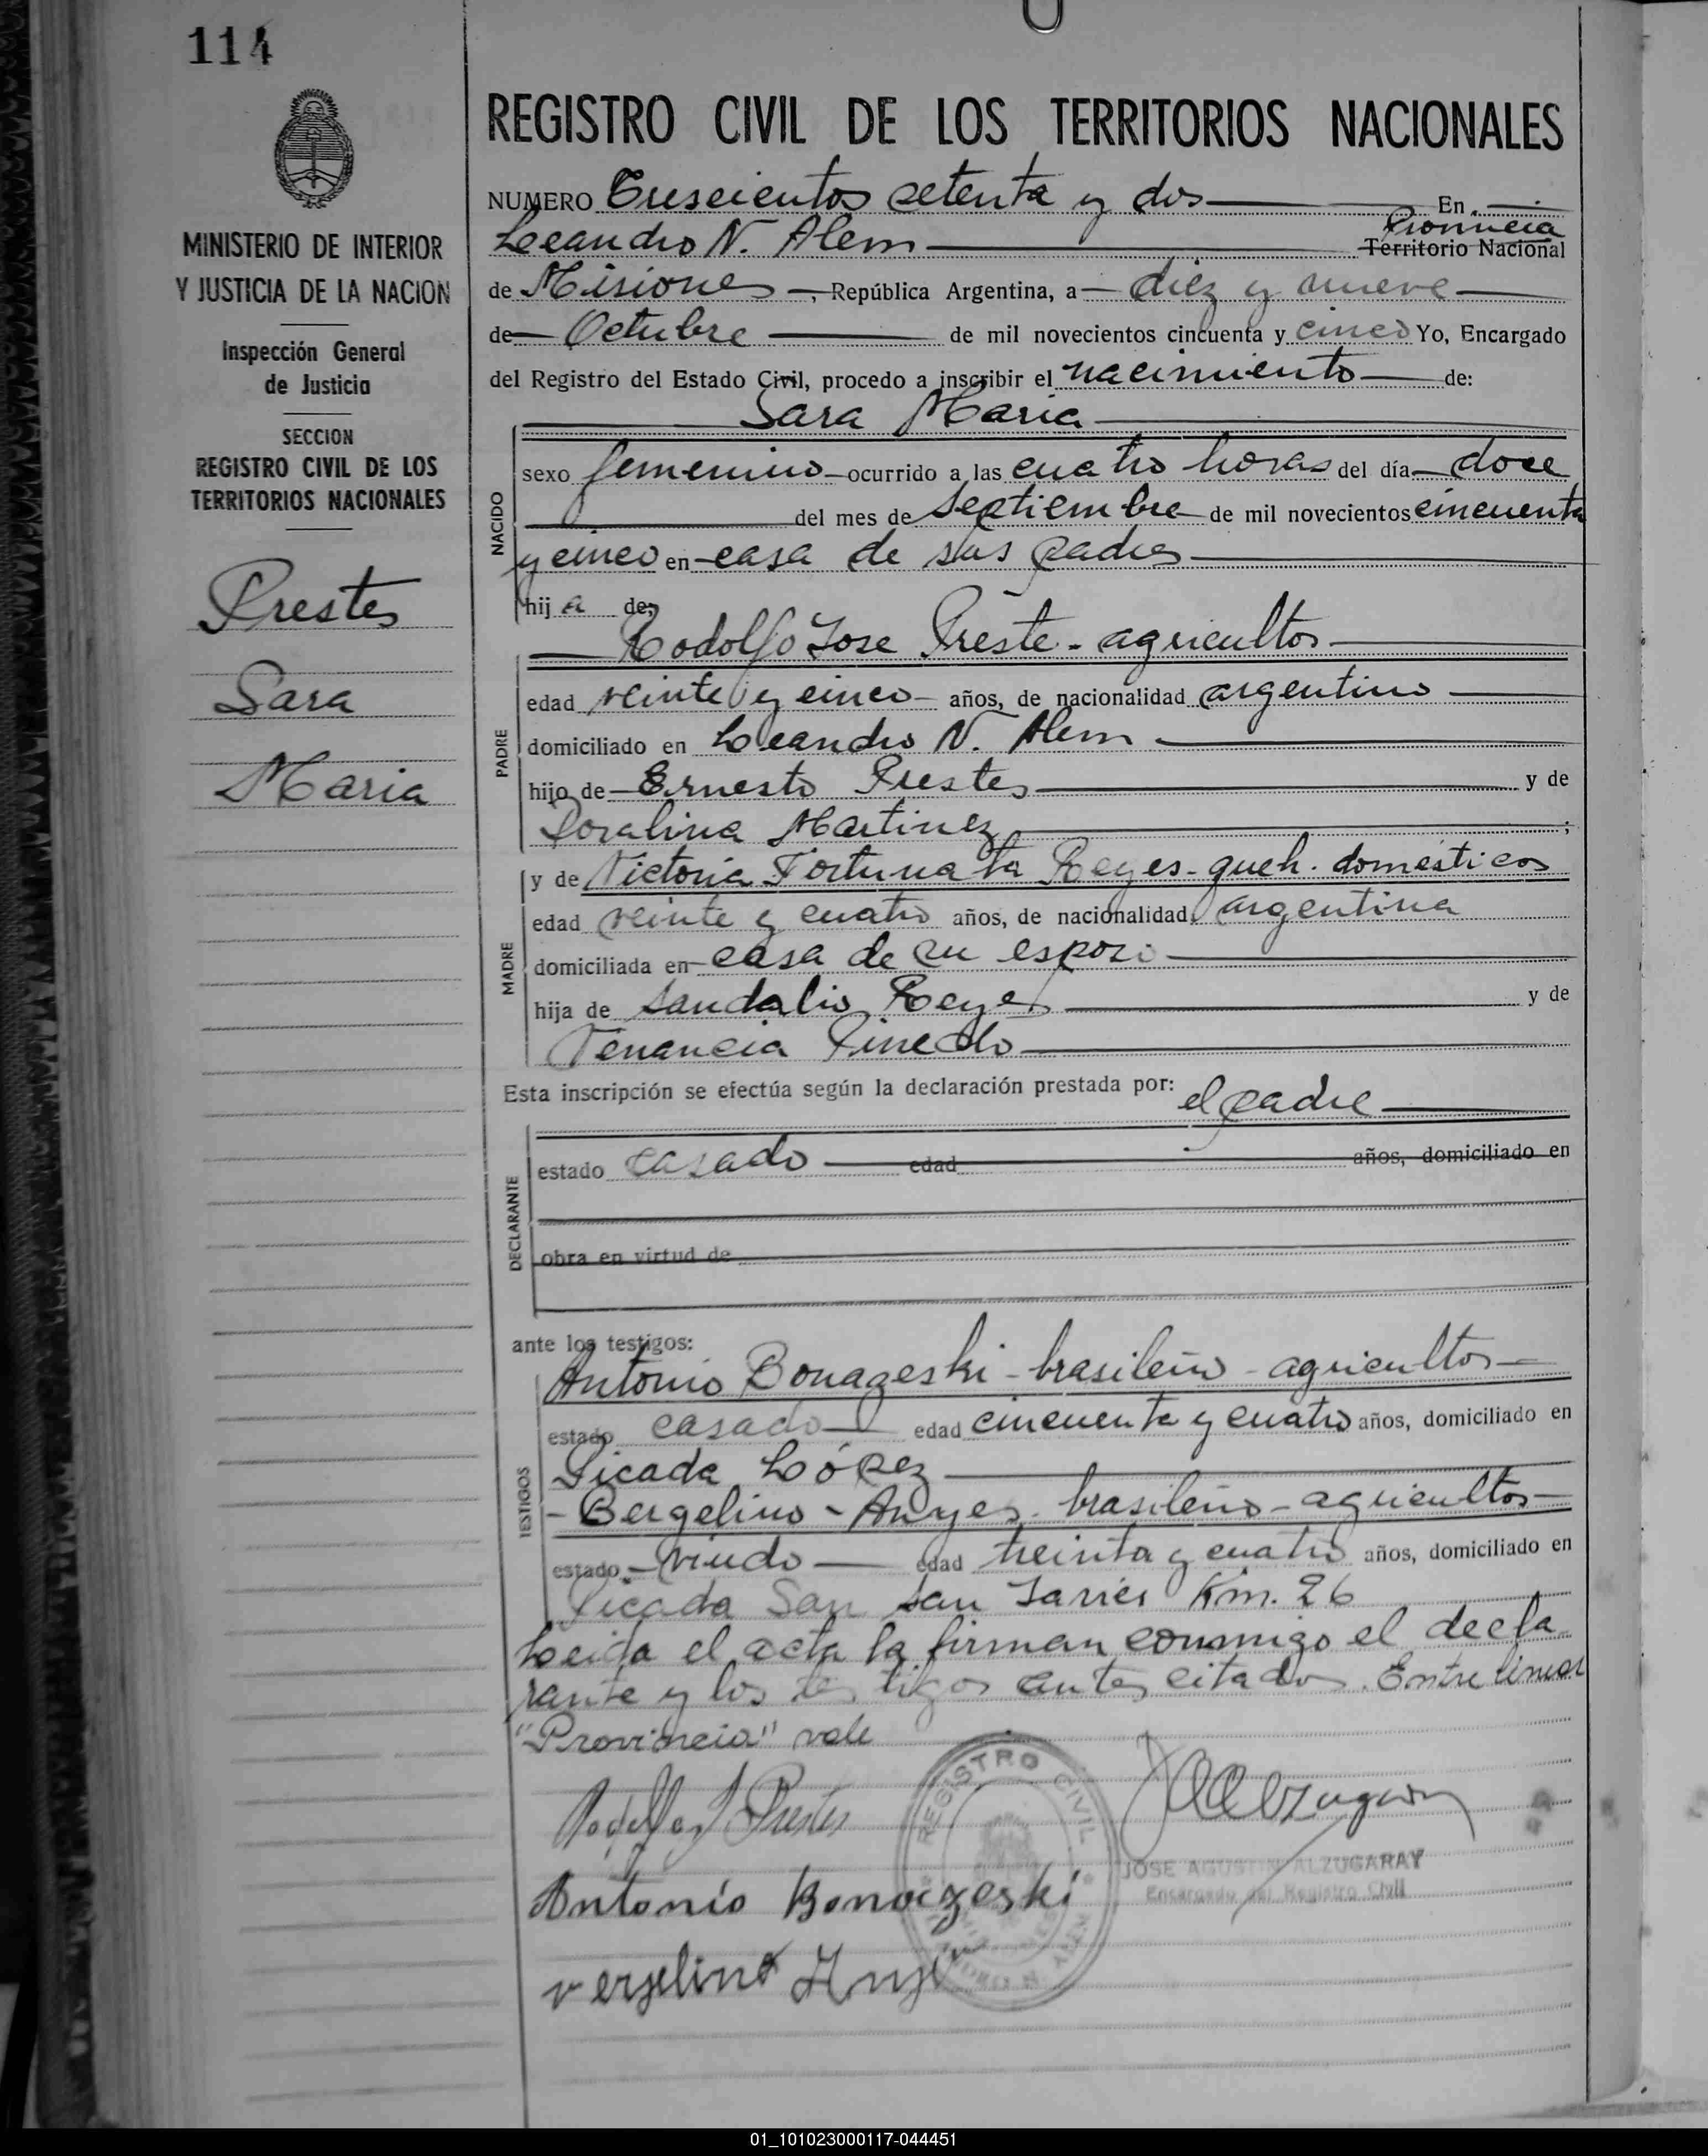 114
MINISTERIO DE INTERIOR
Y JUSTICIA DE LA NACION
Inspección General
de Justicia
SECCION
REGISTRO CIVIL DE LOS
TERRITORIOS NACIONALES
Prestes
Sara
Maria
REGISTRO CIVIL DE LOS TERRITORIOS NACIONALES
NUMERO Trescientos setenta y dos En
Provincia
Leeandro N. Alem Territorio Nacional
de Misiones, República Argentina, a diez y nueve
de Octubre de mil novecientos cincuenta y cinco Yo, Encargado
del Registro del Estado Civil, procedo a inscribir el nacimiento de:
Sara Maria
NACIDO
sexo femenino ocurrido a las cuatro horas del día doce
del mes de Septiembre de mil novecientos cincuenta
y cinco en casa de sus padres
hij a de:
Rodolfo Jose Preste - agricultor
PADRE
edad veinte y cinco años, de nacionalidad argentino
domiciliado en Leandro N. Alem
hijo de Ernesto Prestes y de
Martinez;
y de Victoria Fortunata Reyes - queh. domésticos
MADRE
edad veinte y cuatro años, de nacionalidad argentina
domiciliada en casa de su esposo
hija de Sandalio Reyes y de
Venancia Pinedo
Esta inscripción se efectúa según la declaración prestada por: el padre
DECLARANTE
estado casado edad años, domiciliado en
obra en virtud de
ante los testigos:
Antonio Bonazeski - brasileño - agricultor
TESTIGOS
estado casado edad cincuenta y cuatro años, domiciliado en
Picada López
- Bergelino - brasileño - agricultor
estado - viudo edad treinta y cuatro años, domiciliado en
Picada San San Javier Km. 26
Leida el acta la firman conmigo el decla
rante y los testigos antes citados. Entre lineas
"Provincia" vale
Rodolfo J Prestes
REGISTRO CIVIL
JOSE AGUSTIN ALZUGARAY
Encargado del Registro Civil
Antonio Bonaczeski
vergelino
01_101023000117-044451